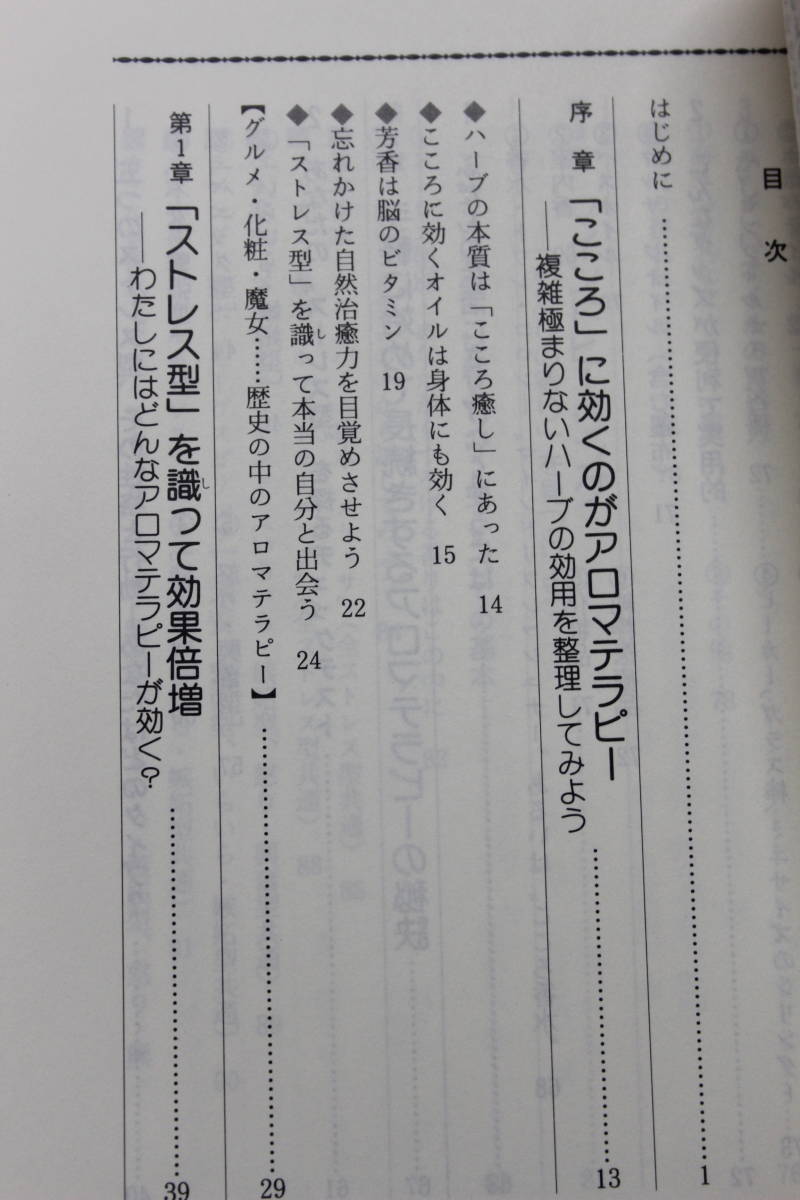 目次
はじめに……………………………1
序章 「こころ」に効くのがアロマテラピー……………………………13
――複雑極まりないハーブの効用を整理してみよう
◆ハーブの本質は「こころ癒し」にあった 14
◆こころに効くオイルは身体にも効く 15
◆芳香は脳のビタミン 19
◆忘れかけた自然治癒力を目覚めさせよう 22
◆「ストレス型」を識って本当の自分と出会う 24
し
【グルメ・化粧・魔女……歴史の中のアロマテラピー】……………………………29
第1章 「ストレス型」を識つて効果倍増……………………………39
し
――わたしにはどんなアロマテラピーが効く?